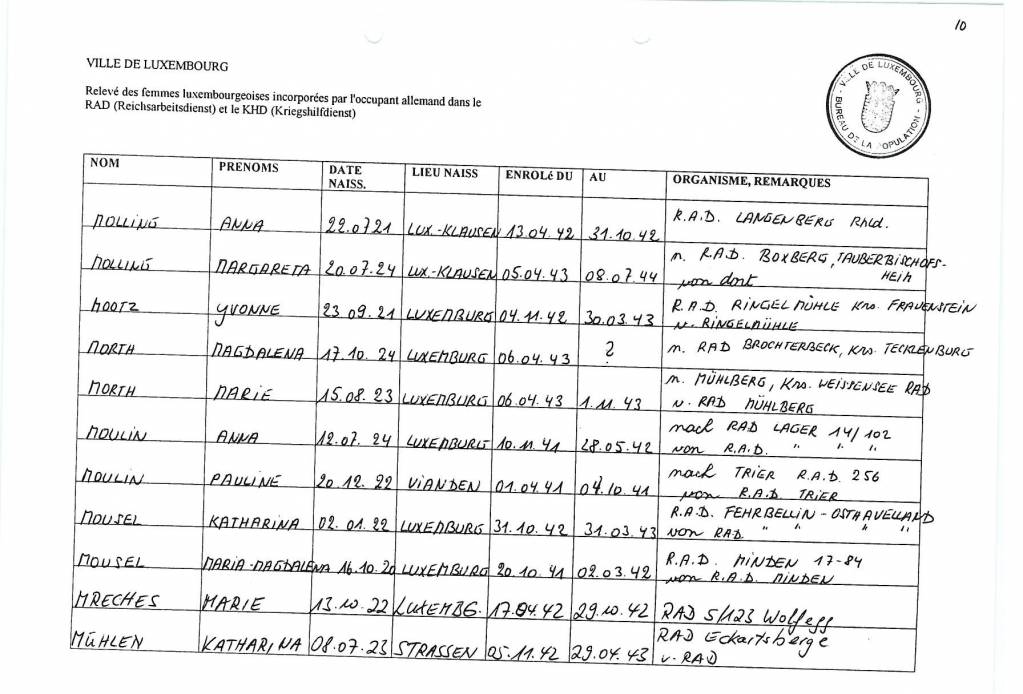 10
VILLE DE LUXEMBOURG
Relevé des femmes luxembourgeoises incorporées par l'occupant allemand dans le
RAD (Reichsarbeitsdienst) et le KHD (Kriegshilfdienst)
VILLE DE LUXEMBOURG - BUREAU DE LA POPULATION -
NOM PRENOMS DATE NAISS. LIEU NAISS ENROLé DU AU ORGANISME, REMARQUES
MOLLING ANNA 22.07.21 LUX.-KLAUSEN 13.04.42 31.10.42 R.A.D. LANGENBERG Rhld.
MOLLING MARGARETA 20.07.24 LUX-KLAUSEN 05.04.43 08.07.44 n. R.A.D. BOXBERG, TAUBERBISCHOFS-
HEIM
von dort
MOOTZ YVONNE 23 09.21 LUXEMBURG 04.11.42 30.03.43 R.A.D. RINGELMÜHLE Krs. FRAUENSTEIN
v. RINGELMÜHLE
MORTH MAGDALENA 17.10.24 LUXEMBURG 06.04.43 ? n. RAD BROCHTERBECK, Krs. TECKLENBURG
MORTH MARIE 15.08.23 LUXEMBURG 06.04.43 1.11.43 n. MÜHLBERG, Krs. WEISSENSEE RAD
v. RAD MÜHLBERG
MOULIN ANNA 12.07.24 LUXEMBURG 10.11.41 28.05.42 nach RAD LAGER 14/102
von R.A.D. " " "
MOULIN PAULINE 20.12.22 VIANDEN 01.04.41 04.10.41 nach TRIER R.A.D. 256
von R.A.D. TRIER
MOUSEL KATHARINA 02.01.22 LUXEMBURG 31.10.42 31.03.43 R.A.D. FEHRBELLIN-OSTHAVELLAND
von RAD " " " "
MOUSEL MARIA-MAGDALENA 16.10.20 LUXEMBURG 20.10.41 02.03.42 R.A.D. MINDEN 17-84
von R.A.D. MINDEN
MRECHES MARIE 13.10.22 LUXEMBG. 17.04.42 29.10.42 RAD 5/123 Wolfegg
MÜHLEN KATHARINA 08.07.23 STRASSEN 05.11.42 29.04.43 RAD Eckartsberge
v. RAD